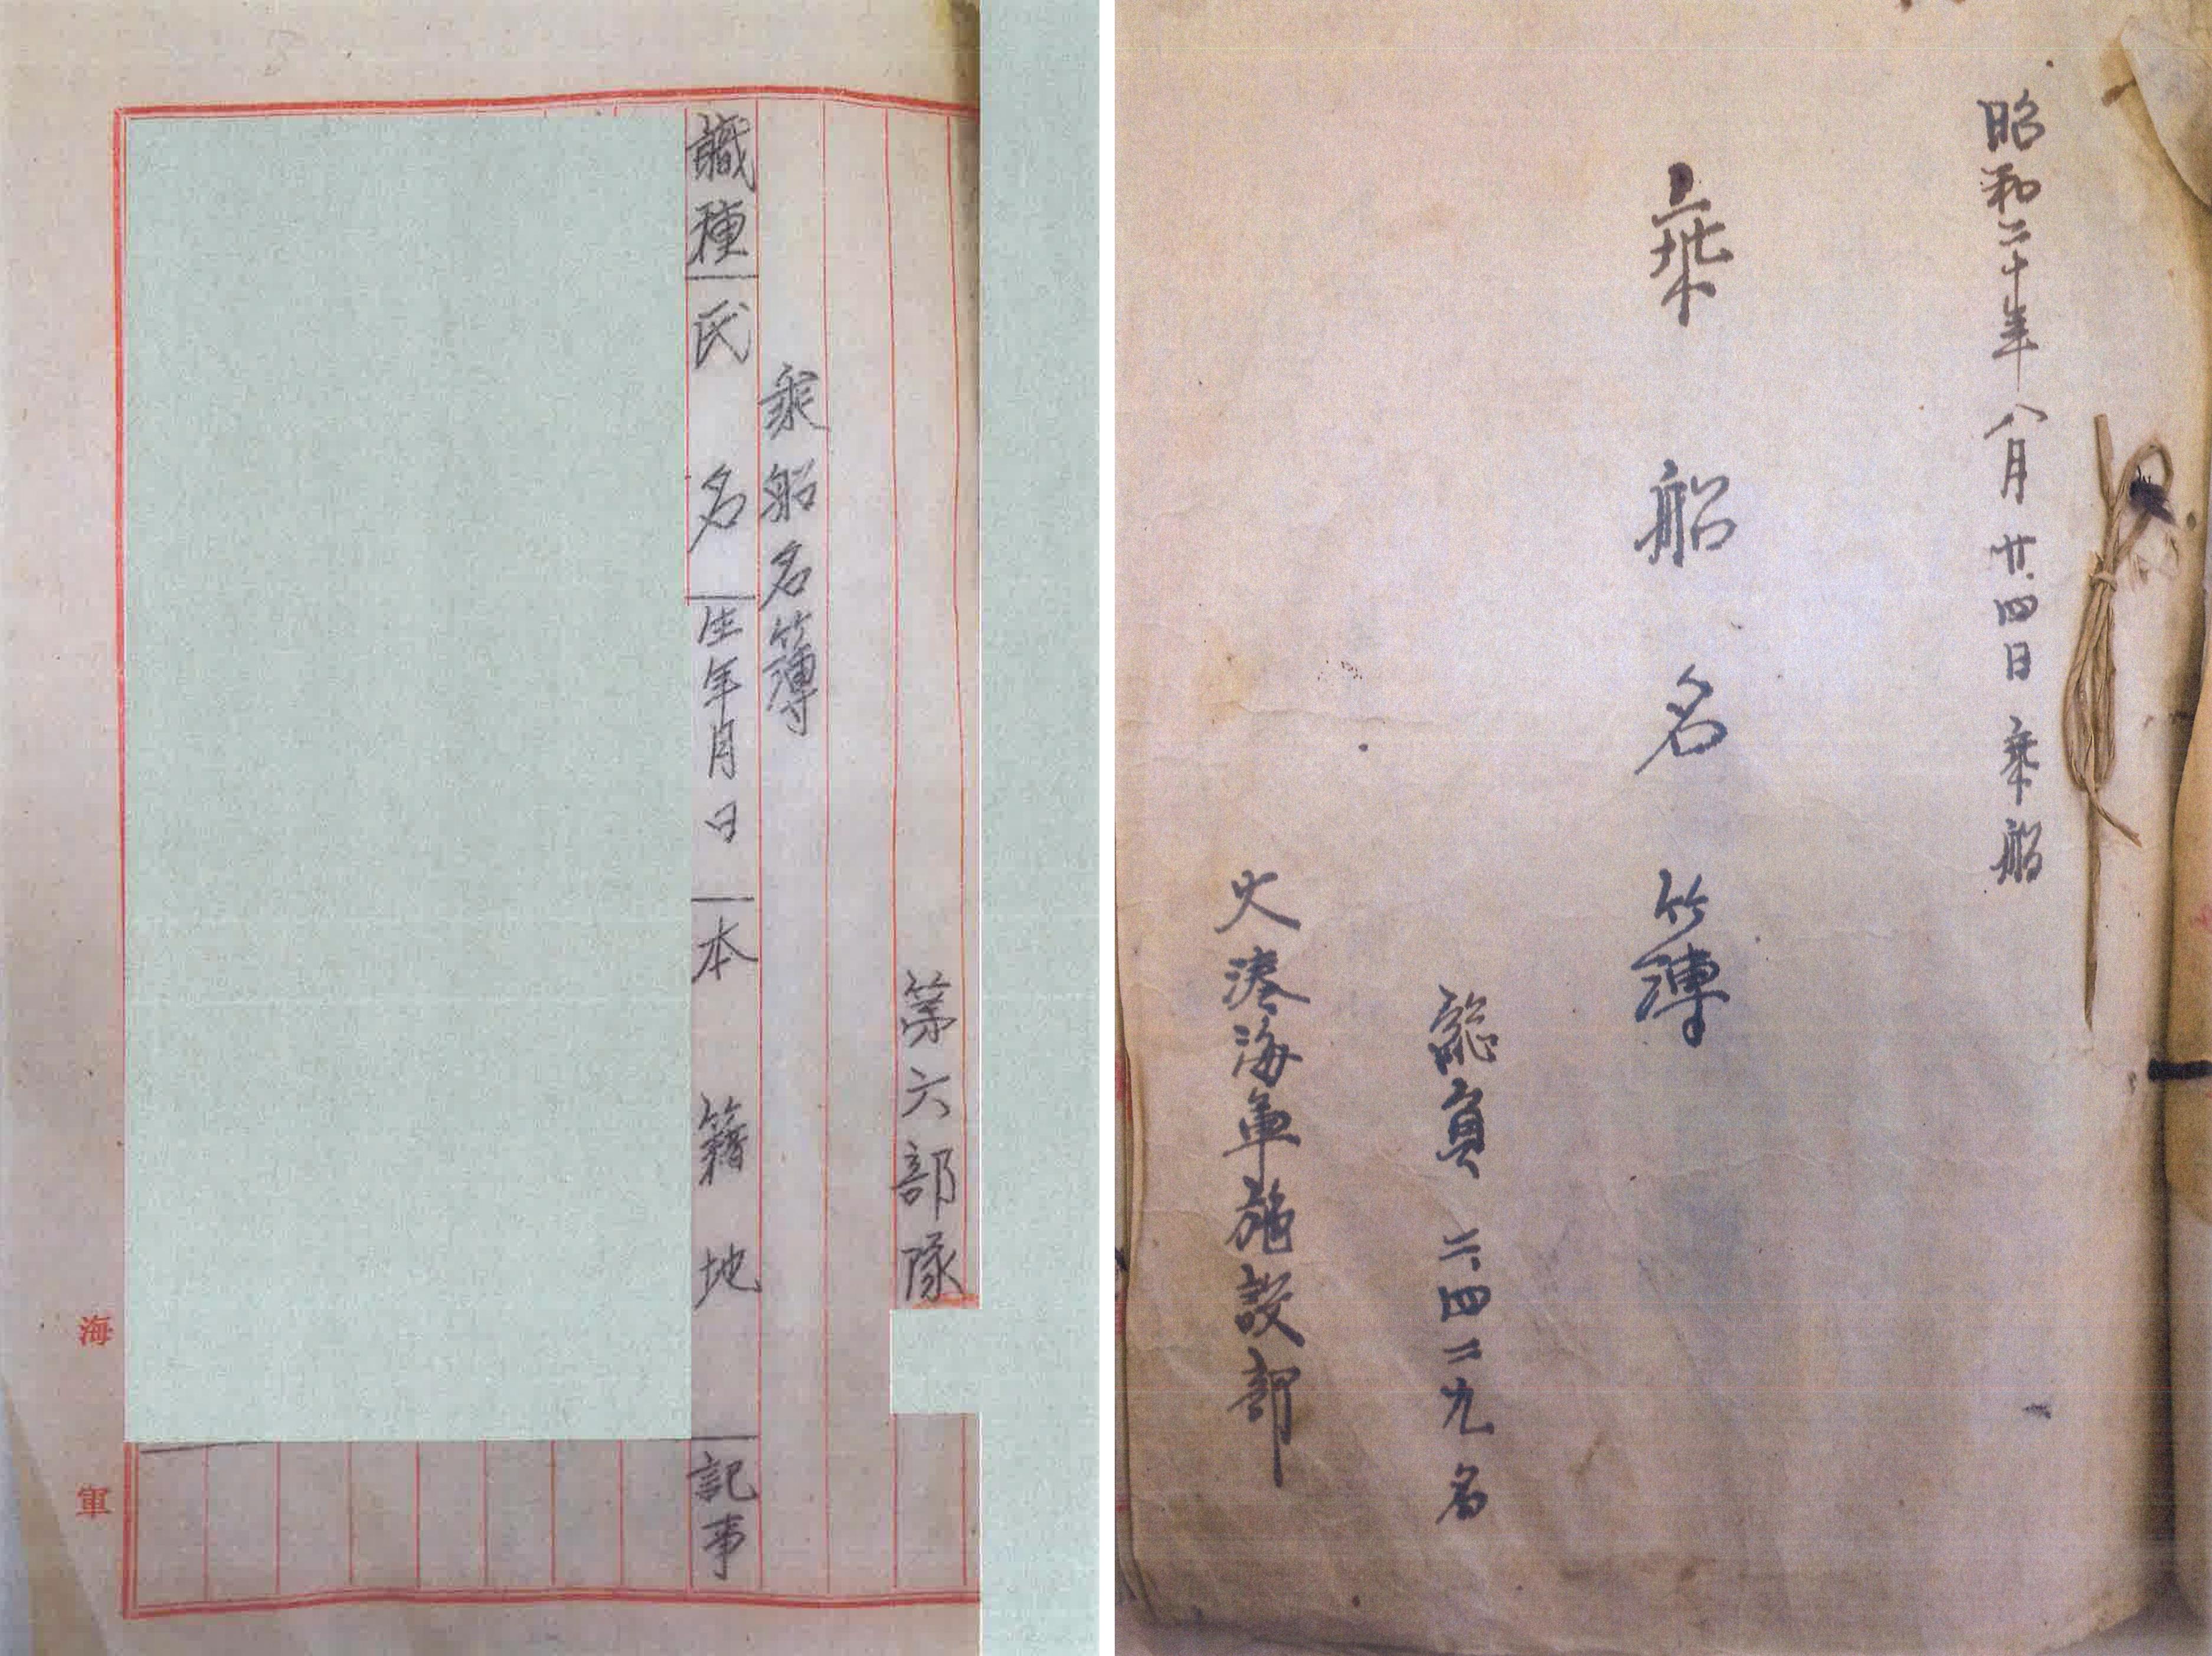 第六部隊
乗船名簿
職種 氏名 生年月日 本籍地 記事
海軍
昭和二十年八月廿四日乗船
乗船名簿
総員 二、四二九名
大湊海軍施設部